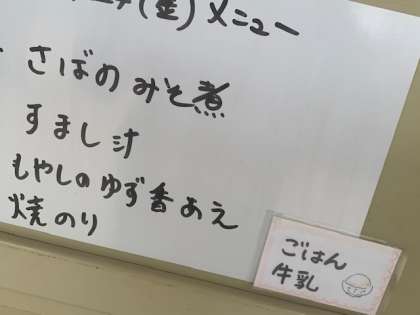 (金) メニュー
さばのみそ煮
すまし汁
もやしのゆず香あえ
焼のり
ごはん
牛乳